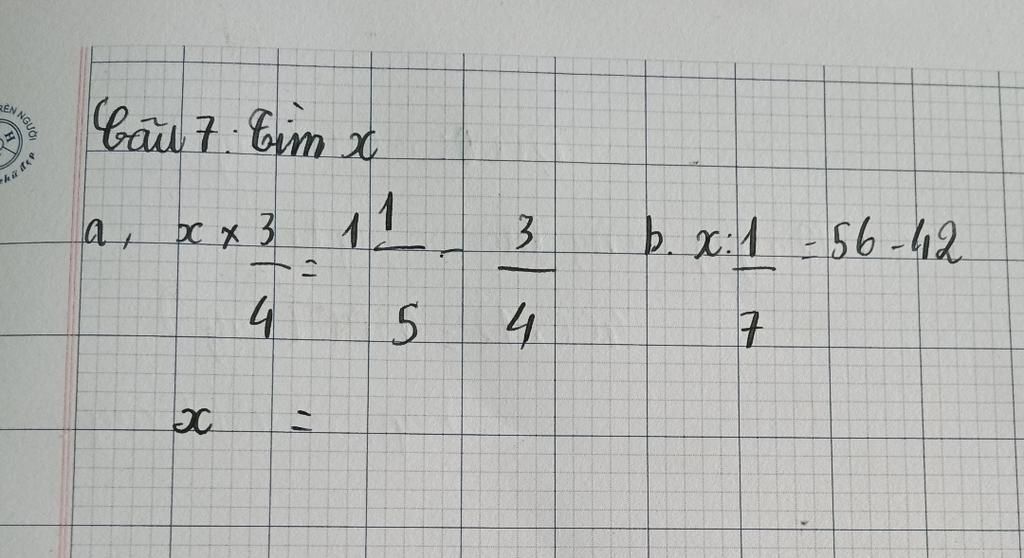 Câu 7: Tìm x
a, x × 3/4 = 1 1/5 - 3/4 b. x : 1/7 = 56 - 42
x =